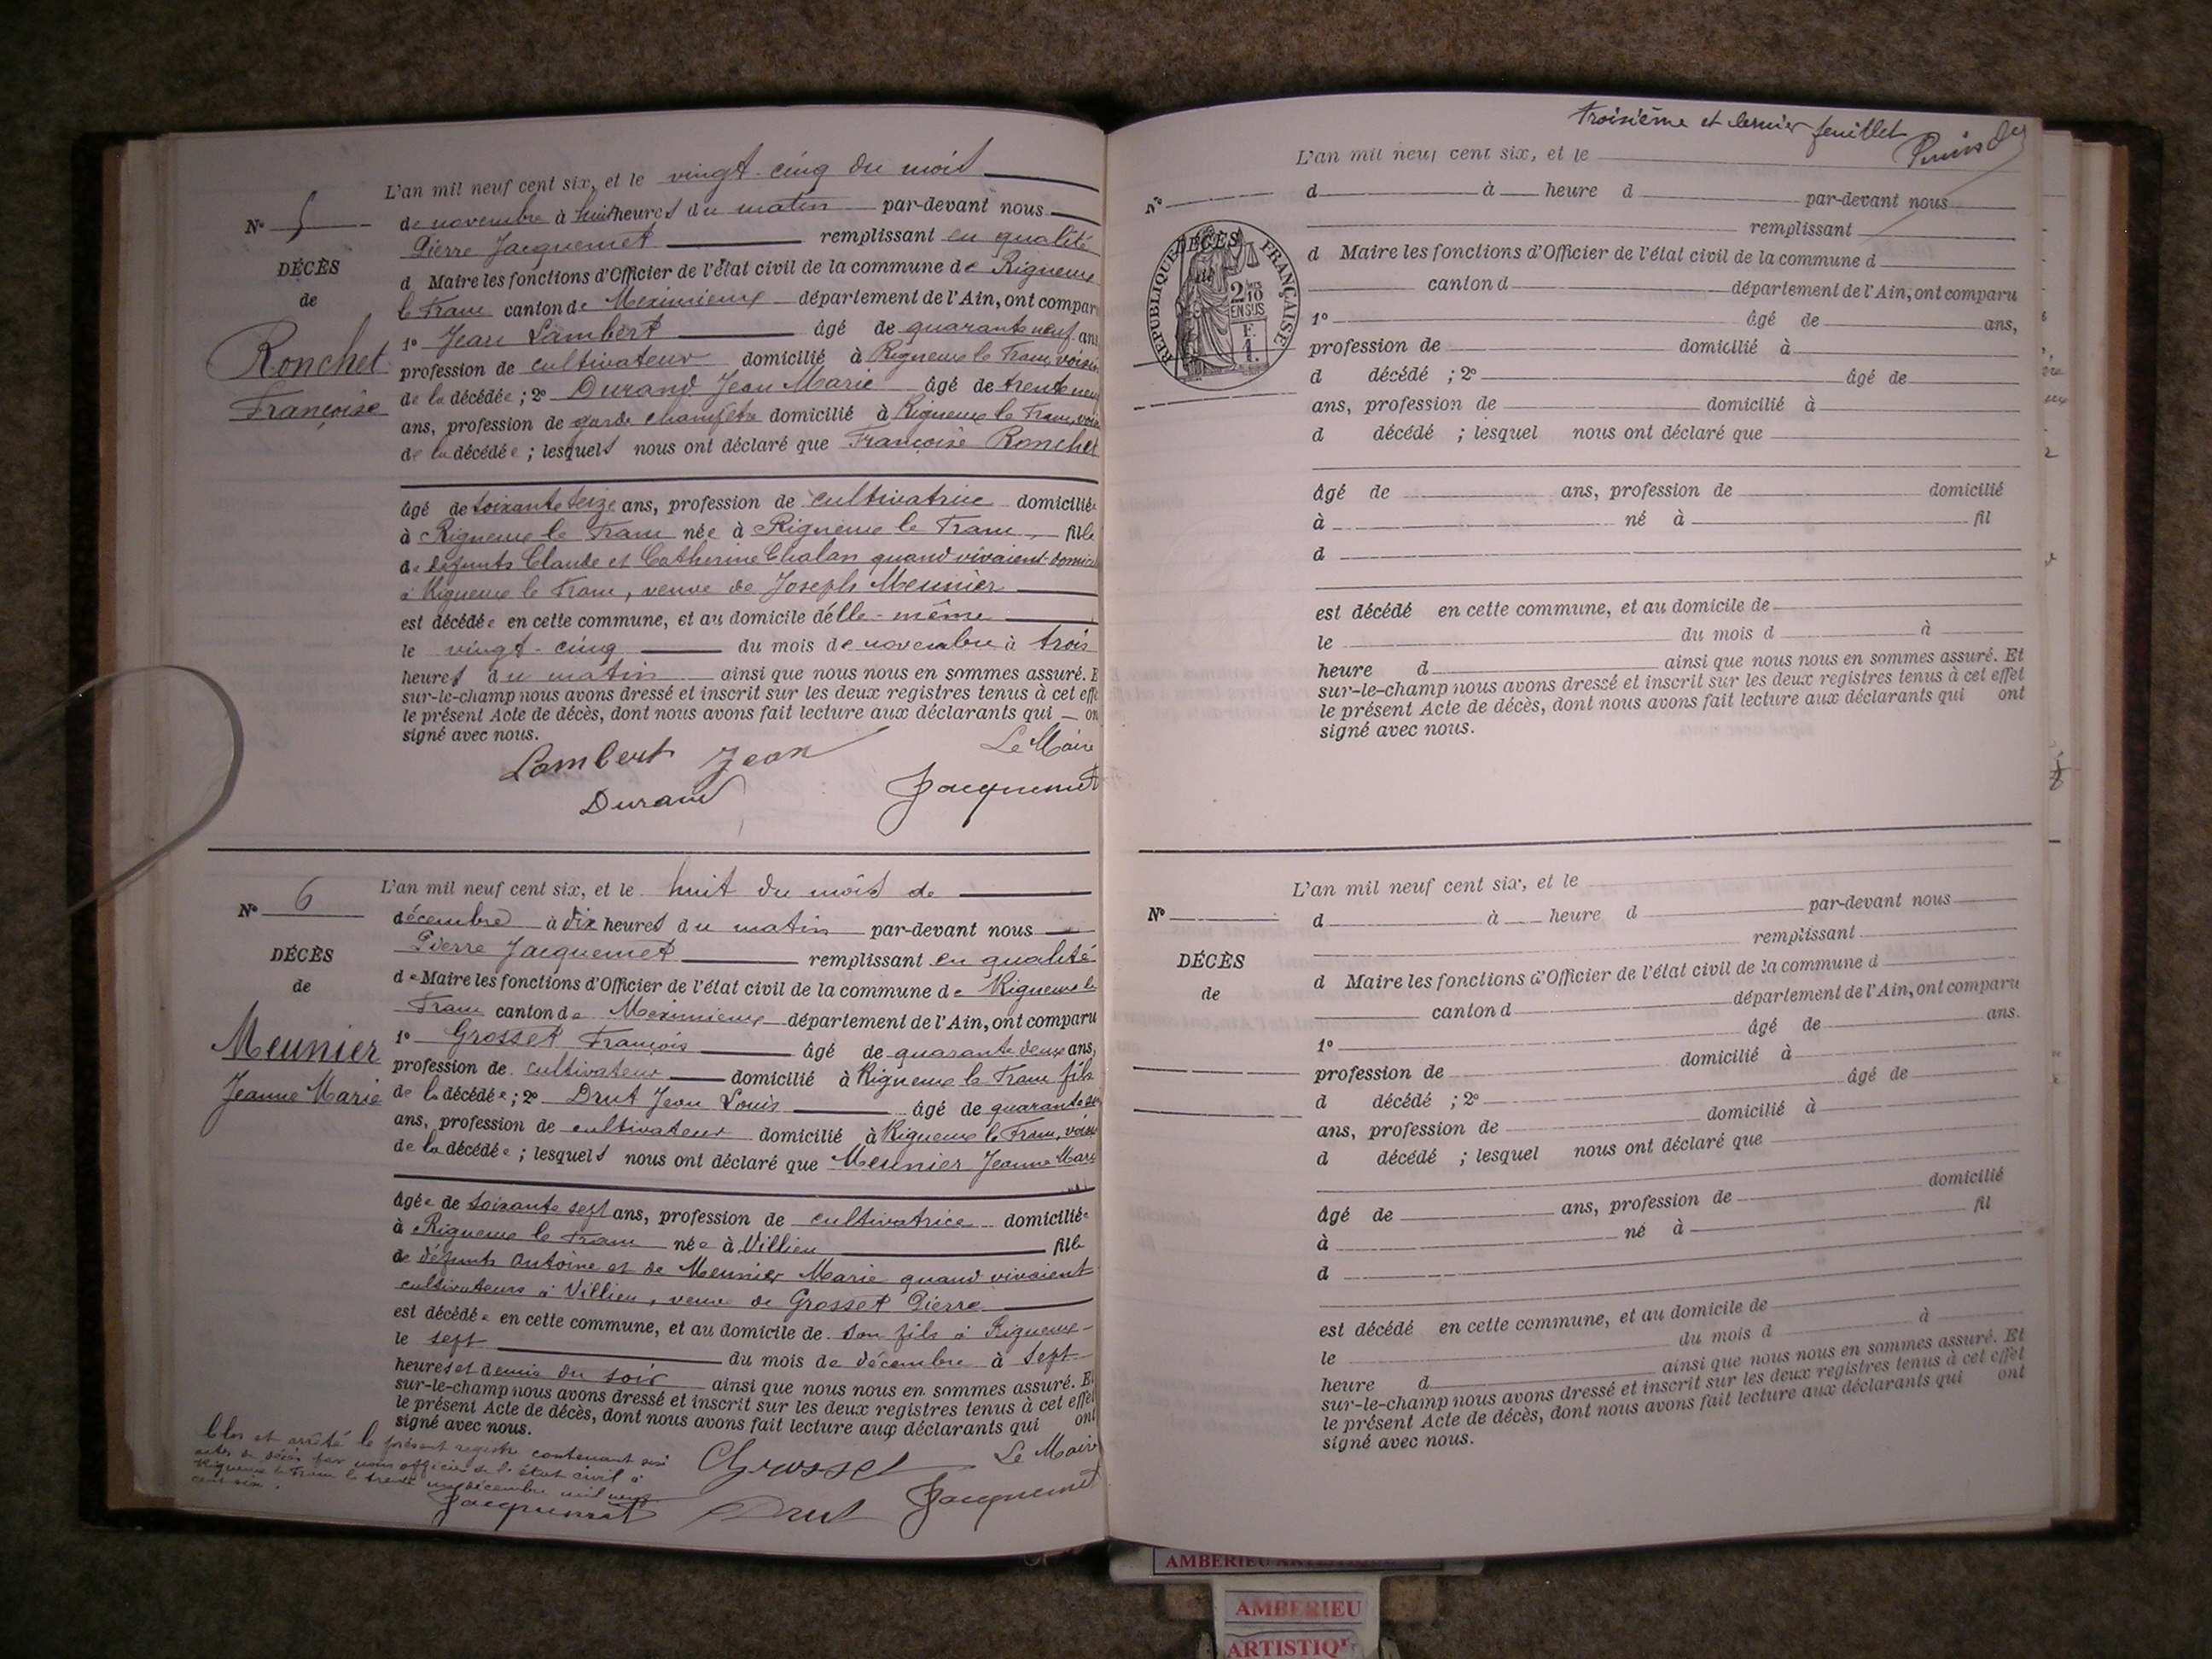 L'an mil neuf cent six, et le vingt-cinq du mois
N° 5
de novembre à huit heures du matin par-devant nous
Pierre Jacquemet remplissant en qualité
DÉCÈS
d Maire les fonctions d'Officier de l'état civil de la commune de Rigneux
de
le Franc canton de Meximieux département de l'Ain, ont compar
Ronchet
1° Jean Lambert âgé de quarante neuf ans
profession de cultivateur domicilié à Rigneux le Franc, voisin
Françoise
de la décédée ; 2° Durand Jean Marie âgé de trente neuf
ans, profession de garde champêtre domicilié à Rigneux le Franc, voisin
de la décédée ; lesquels nous ont déclaré que Françoise Ronchet
âgé de soixante seize ans, profession de cultivatrice domiciliée
à Rigneux le Franc née à Rigneux le Franc fille
de défunts Claude et Catherine Chalan quand vivaient domicil
à Rigneux le Franc, veuve de Joseph Meunier
est décédée en cette commune, et au domicile d'elle-même
le vingt-cinq du mois de novembre à trois
heures du matin ainsi que nous nous en sommes assuré. E
sur-le-champ nous avons dressé et inscrit sur les deux registres tenus à cet effe
le présent Acte de décès, dont nous avons fait lecture aux déclarants qui on
signé avec nous.
Lambert Jean Le Maire
Durand Jacquemet
L'an mil neuf cent six, et le huit du mois de
N° 6
décembre à dix heures du matin par-devant nous
Pierre Jacquemet remplissant en qualité
DÉCÈS
de Maire les fonctions d'Officier de l'état civil de la commune de Rigneux le
de
Franc canton de Meximieux département de l'Ain, ont comparu
Meunier
1° Grosset François âgé de quarante deux ans,
profession de cultivateur domicilié à Rigneux le Franc fils
Jeanne Marie
de la décédée ; 2° Drut Jean Louis âgé de quarante
ans, profession de cultivateur domicilié à Rigneux le Franc, voisin
de la décédée ; lesquels nous ont déclaré que Meunier Jeanne Marie
âgée de soixante sept ans, profession de cultivatrice domiciliée
à Rigneux le Franc née à Villieu fille
de défunts Antoine et de Meunier Marie quand vivaient
cultivateurs à Villieu, veuve de Grosset Pierre
est décédée en cette commune, et au domicile de son fils à Rigneux
le sept du mois de décembre à sept
heures et demie du soir ainsi que nous nous en sommes assuré. E
sur-le-champ nous avons dressé et inscrit sur les deux registres tenus à cet effet
le présent Acte de décès, dont nous avons fait lecture aux déclarants qui ont
signé avec nous.
Clos et arrêté le présent registre contenant six
actes de décès par nous officier de l'état civil à
Rigneux le Franc le trente un décembre mil neuf
cent six.
Grosset Le Maire
Jacquemet Drut Jacquemet
troisième et dernier feuillet
L'an mil neuf cent six, et le
N°
d à heure d par-devant nous
remplissant
DÉCÈS
de
RÉPUBLIQUE FRANÇAISE
2/10 EN SUS
F. 1.
d Maire les fonctions d'Officier de l'état civil de la commune d
canton d département de l'Ain, ont comparu
1° âgé de ans,
profession de domicilié à
d décédé ; 2° âgé de
ans, profession de domicilié à
d décédé ; lesquel nous ont déclaré que
âgé de ans, profession de domicilié
à né à fil
d
est décédé en cette commune, et au domicile de
le du mois d à
heure d ainsi que nous nous en sommes assuré. Et
sur-le-champ nous avons dressé et inscrit sur les deux registres tenus à cet effet
le présent Acte de décès, dont nous avons fait lecture aux déclarants qui ont
signé avec nous.
L'an mil neuf cent six, et le
N°
d à heure d par-devant nous
remplissant
DÉCÈS
de
d Maire les fonctions d'Officier de l'état civil de la commune d
canton d département de l'Ain, ont comparu
1° âgé de ans.
profession de domicilié à
d décédé ; 2° âgé de
ans, profession de domicilié à
d décédé ; lesquel nous ont déclaré que
âgé de ans, profession de domicilié
à né à fil
d
est décédé en cette commune, et au domicile de
le du mois d à
heure d ainsi que nous nous en sommes assuré. Et
sur-le-champ nous avons dressé et inscrit sur les deux registres tenus à cet effet
le présent Acte de décès, dont nous avons fait lecture aux déclarants qui ont
signé avec nous.
AMBERIEU
AMBERIEU
ARTISTIQU